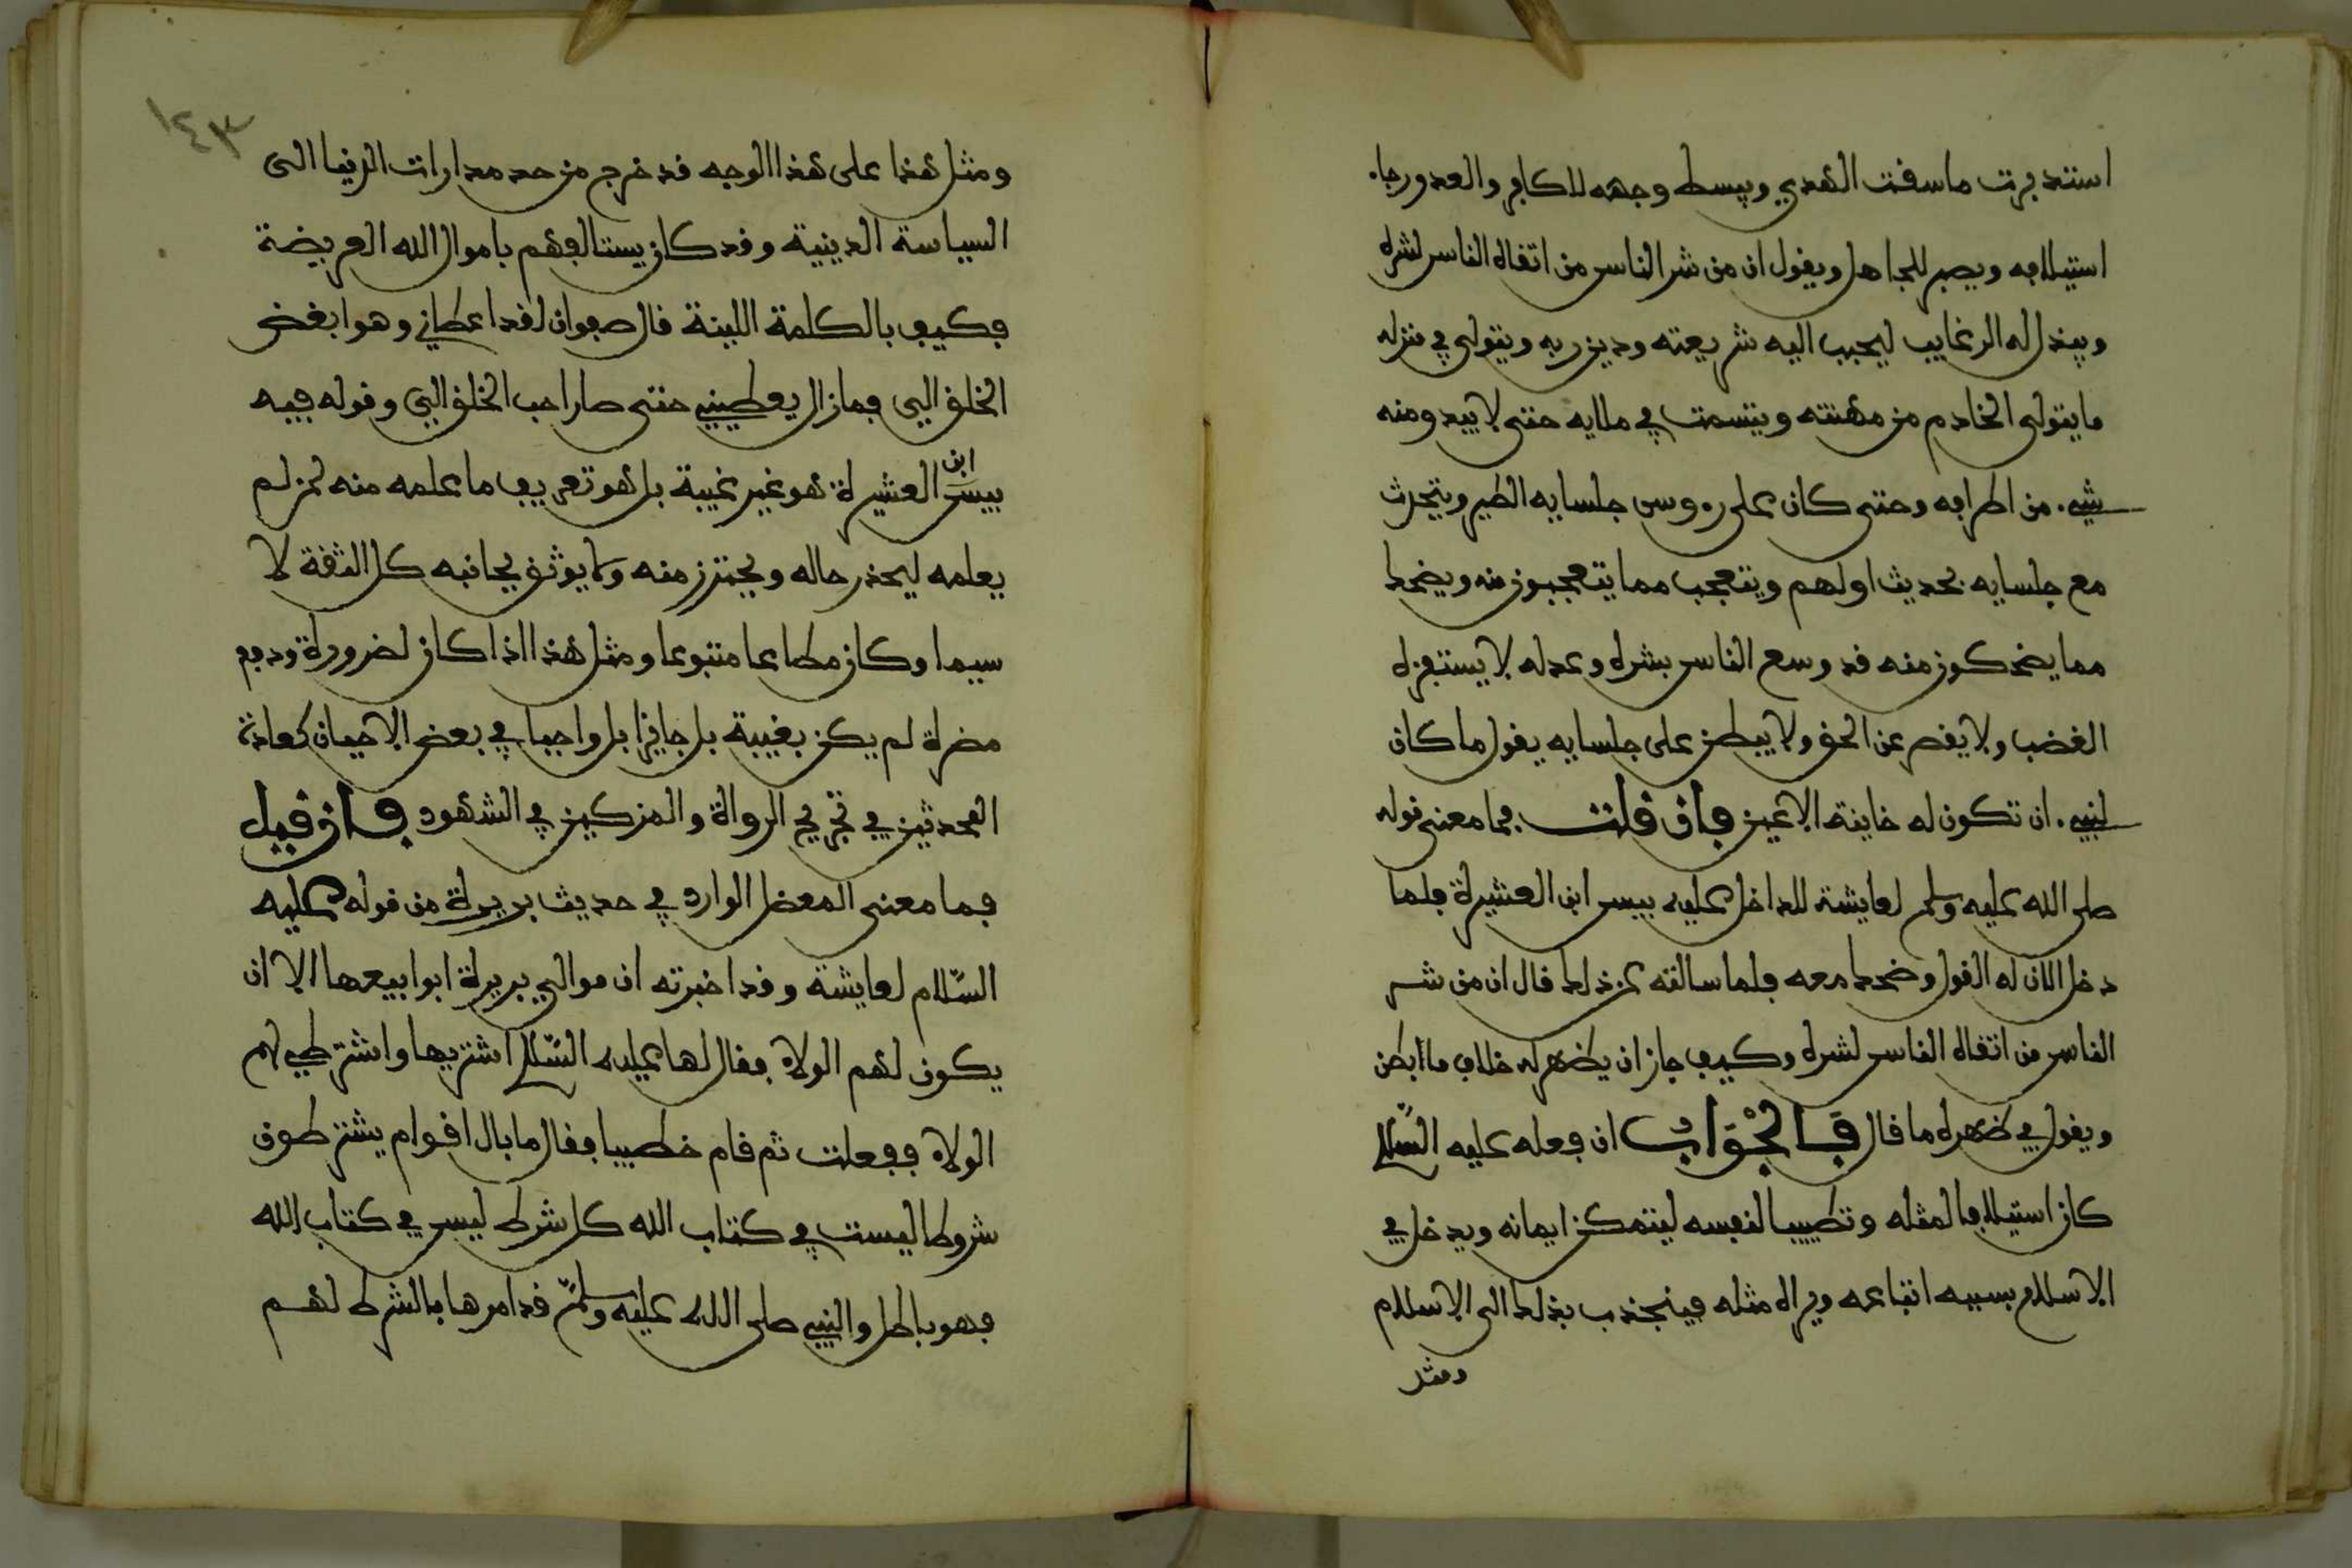 استدبرت ما سقت الهدي ويبسط وجهه للكافر والعدو رجاء
استيلافه ويصبر للجاهل ويقول ان من شر الناس من اتقاه الناس لشره
ويبذل له الرغايب ليحبب اليه شريعته ودين ربه ويتولى في منزله
ما يتولى الخادم من مهنته ويتسمت في ملايه حتى لا يبدو منه
شيء من اطرافه وحتى كان على رءوس جلسايه الطير ويتحدث
مع جلسايه بحديث اولهم ويتعجب مما يتعجبون منه ويضحك
مما يضحكون منه قد وسع الناس بشره وعدله لا يستفزه
الغضب ولا يقصر عن الحق ولا يبطن على جلسايه يقول ما كان
لنبيء ان تكون له خاينة الاعين فان قلت فما معنى قوله
صلى الله عليه وسلم لعايشة للداخل عليه بيس ابن العشيرة فلما
دخل الان له القول وضحك معه فلما سالته عن ذلك قال ان من شر
الناس من اتقاه الناس لشره وكيف جاز ان يظهر له خلاف ما ابطن
ويقول في ظهره ما قال فالجواب ان فعله عليه السلام
كان استيلافا لمثله وتطييبا لنفسه ليتمكن ايمانه ويدخل في
الاسلام بسببه اتباعه ويراه مثله فينجذب بذلك الى الاسلام
ومثل
١٤٣
ومثل هذا على هذا الوجه قد خرج من حد مدارات الدنيا الى
السياسة الدينية وقد كان يستالفهم باموال الله العريضة
فكيف بالكلمة اللينة قال صفوان لقد اعطاني وهو ابغض
الخلق الي فما زال يعطيني حتى صار احب الخلق الي وقوله فيه
بيس ابن العشيرة هو غير غيبة بل هو تعريف ما علمه منه لمن لم
يعلمه ليحذر حاله ويحترز منه ولا يوثق بجانبه كل الثقة لا
سيما وكان مطاعا متبوعا ومثل هذا اذا كان لضرورة ودفع
مضرة لم يكن بغيبة بل جايزا بل واجبا في بعض الاحيان كعادة
المحدثين في تجريح الرواة والمزكين في الشهود فان قيل
فما معنى المعضل الوارد في حديث بريرة من قوله عليه
السلام لعايشة وقد اخبرته ان موالي بريرة ابوا بيعها الا ان
يكون لهم الولاء فقال لها عليه السلام اشتريها واشترطي لهم
الولاء ففعلت ثم قام خطيبا فقال ما بال اقوام يشترطون
شروطا ليست في كتاب الله كل شرط ليس في كتاب الله
فهو باطل والنبيي صلى الله عليه وسلم قد امرها بالشرط لهم